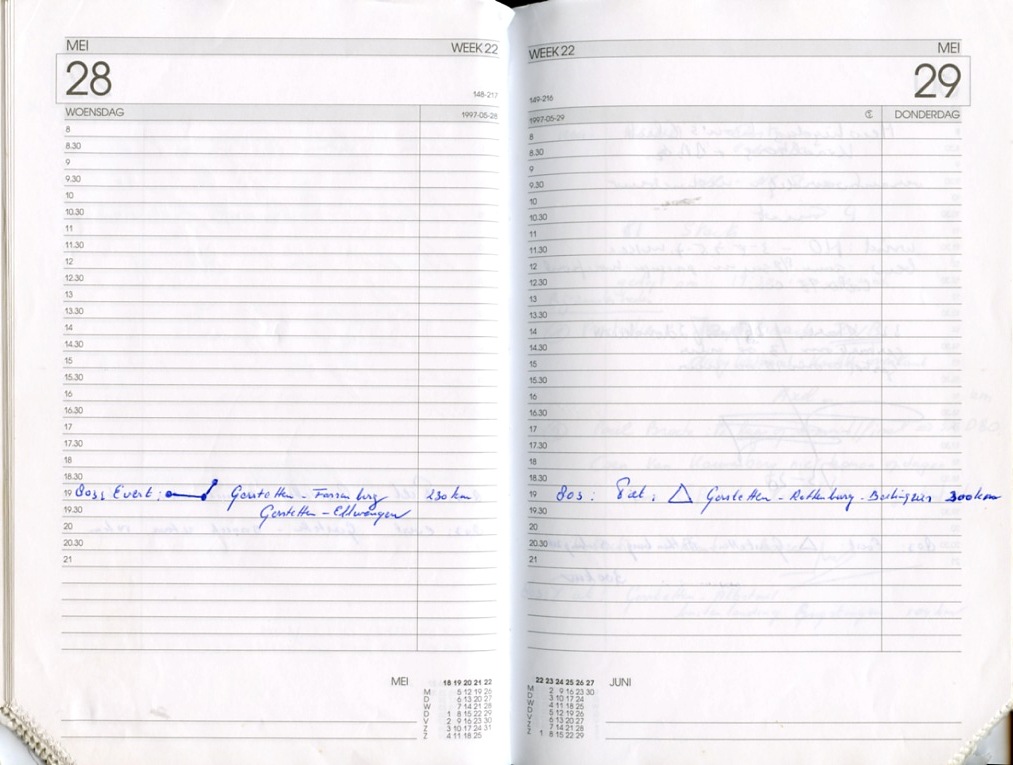 MEI WEEK 22
28
148-217
WOENSDAG 1997-05-28
8
8.30
9
9.30
10
10.30
11
11.30
12
12.30
13
13.30
14
14.30
15
15.30
16
16.30
17
17.30
18
18.30
19 803, Evert : Gerstetten - 230 km
19.30 Gerstetten - Ellwangen
20
20.30
21
MEI 18 19 20 21 22
M 5 12 19 26
D 6 13 20 27
W 7 14 21 28
D 1 8 15 22 29
V 2 9 16 23 30
Z 3 10 17 24 31
Z 4 11 18 25
WEEK 22 MEI
29
149-216
1997-05-29 DONDERDAG
8
8.30
9
9.30
10
10.30
11
11.30
12
12.30
13
13.30
14
14.30
15
15.30
16
16.30
17
17.30
18
18.30
19 803 : Gerstetten - Rottenburg - 300 km
19.30
20
20.30
21
22 23 24 25 26 27 JUNI
M 2 9 16 23 30
D 3 10 17 24
W 4 11 18 25
D 5 12 19 26
V 6 13 20 27
Z 7 14 21 28
Z 1 8 15 22 29